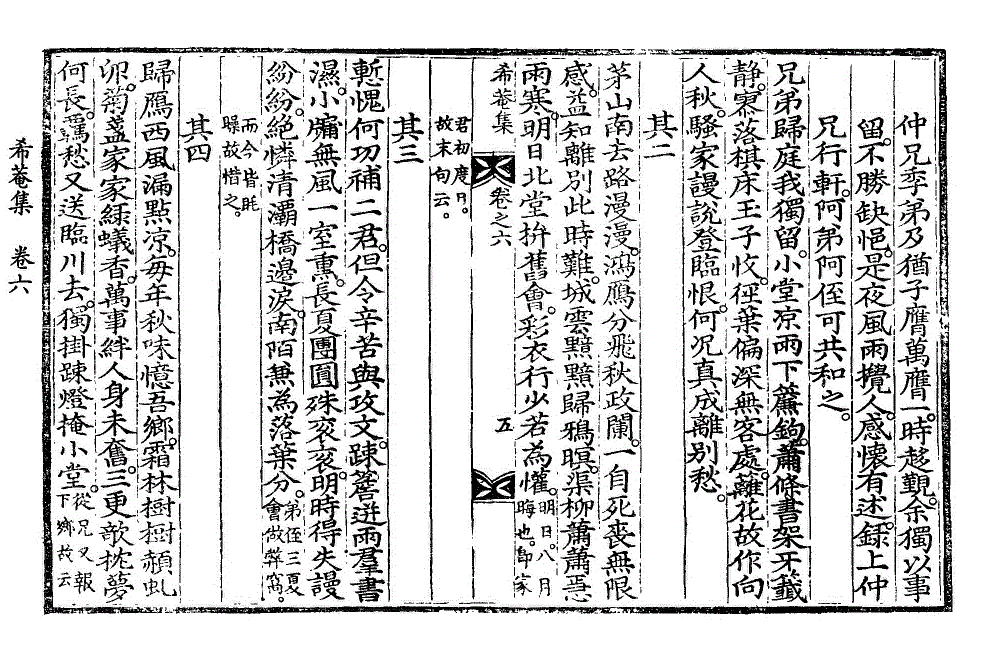 仲兄季弟及猶子膺萬膺一。時趍覲。余獨以事
留。不勝缺悒。是夜風雨攪人。感懷有述。錄上仲
兄行軒。阿弟阿侄可共和之。
兄弟歸庭我獨留。小堂凉雨下簾鉤。蕭條書架牙籤
静。寥落棋床玉子收。徑葉偏深無客處。蘺花故作向
人秋。騷家謾說登臨恨。何况真成離別愁。
其二
茅山南去路漫漫。鴻鴈分飛秋政闌。一自死喪無限
感。益知離別此時難。城雲黯黯歸鴉暝。渠柳蕭蕭舃
雨寒。明日北堂拚舊會。彩衣行少若為懽。明日。八月
晦也。即家
希菴集 卷之六 五
君初度日。
故末句云。
其三
慙愧何功補二君。但令辛苦與攻文。踈簷迸雨羣書
濕。小牖無風一室熏。長夏團圓殊衮衮。明時得失謾
紛紛。絶憐清灞橋邊淚。南陌兼為落葉分。弟侄三夏
會做弊窩。
而今皆眊
矂故惜之。
其四
歸鴈西風漏點凉。每年秋味憶吾鄉。霜林樹樹頳虬
卵。菊盞家家綠蟻香。萬事絆人身未奮。三更欹枕夢
何長。羈愁又送臨川去。獨掛踈燈掩小堂。從兄又報
下鄉故云
希菴集 卷六